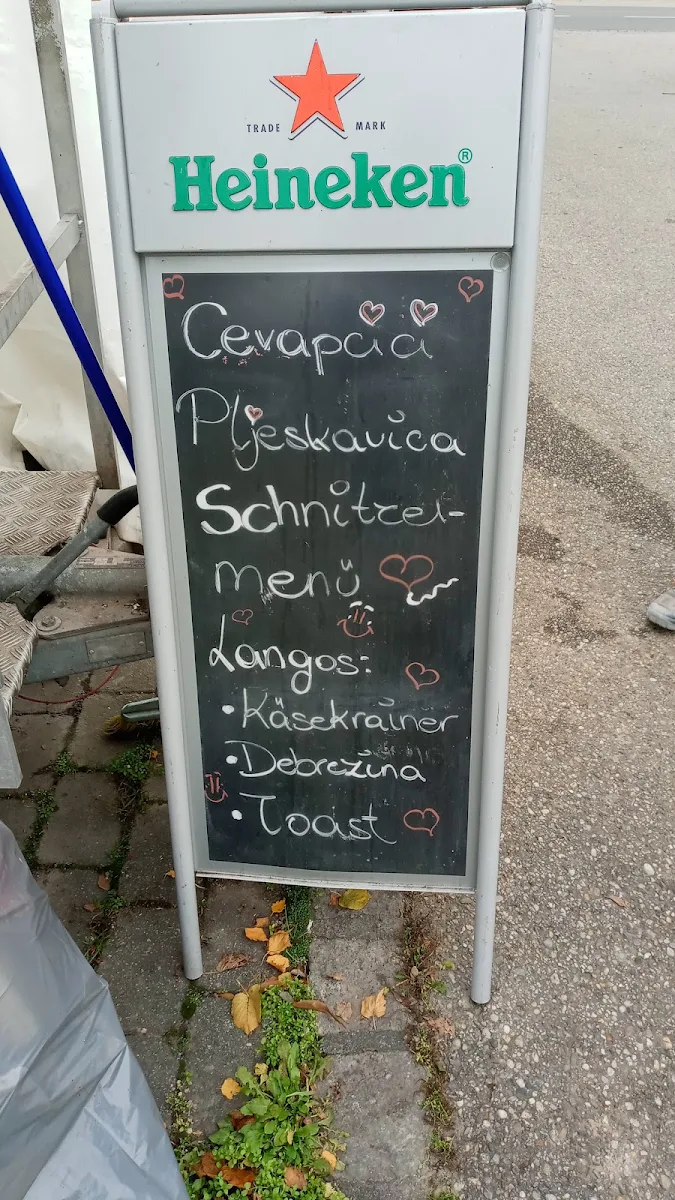 TRADE MARK
Heineken®
Cevapcici
Pljeskavica
Schnitzel-
menü
Langos:
• Käsekrainer
• Debrezina
• Toast